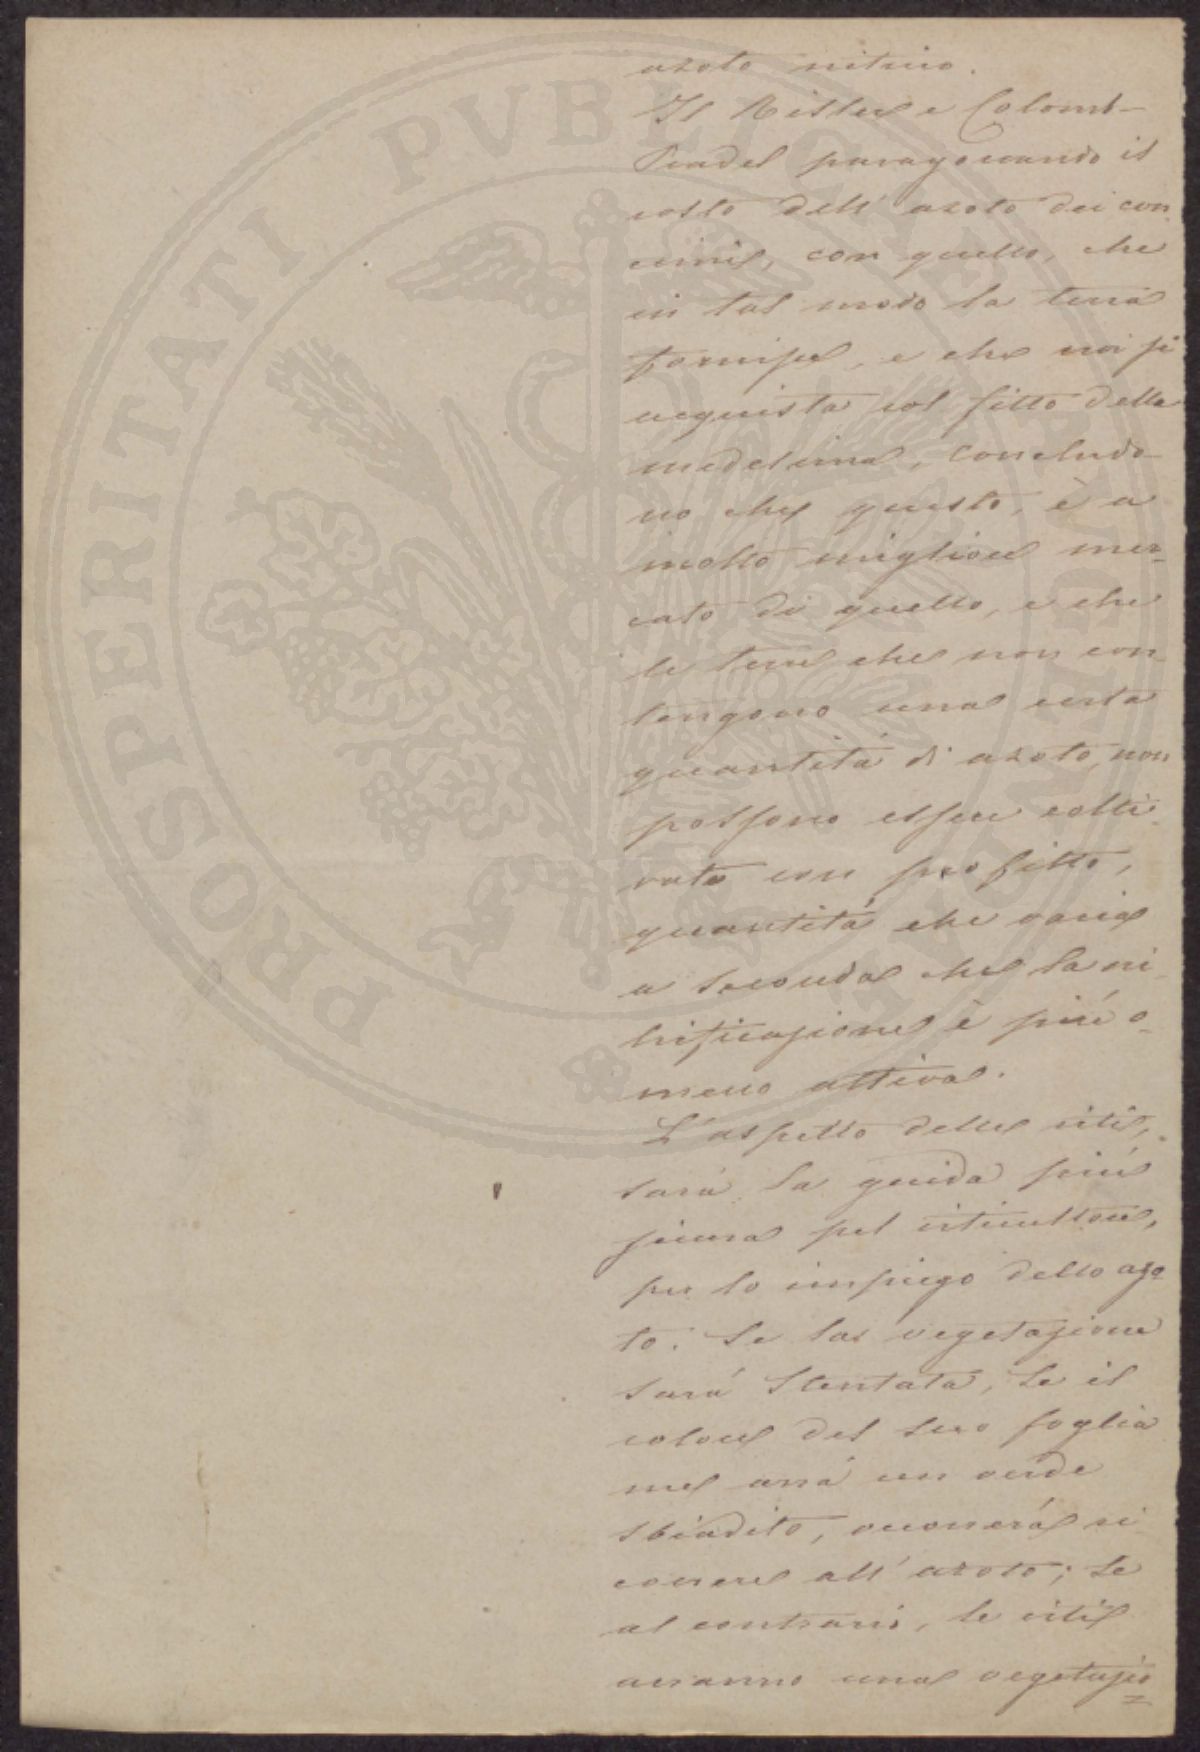 azoto nitrico.
Il Risler e Colomb-
Pradel paragonando il
costo dell' azoto dei con
cimi, con quello, che
in tal modo la terra
fornisce, e che noi si
acquista col fitto della
medesima, concludo-
no che questo, è a
molto migliore mer-
cato di quello, e che
le terre che non con-
tengono una certa
quantità di azoto, non
possono essere colti
vate con profitto,
quantità che varia
a seconda che la ni-
trificazione è più o
meno attiva.
L'aspetto delle viti,
sarà la guida più
sicura pel viticultore,
per lo impiego dello azo
to. Se la vegetazione
sará stentata, se il
colore del suo foglia
me avrá un verde
sbiadito, occorrerá ri
correre all' azoto; se
al contrario, le viti
avranno una vegetazio
PROSPERITATI PVBLICAE AVGENDAE